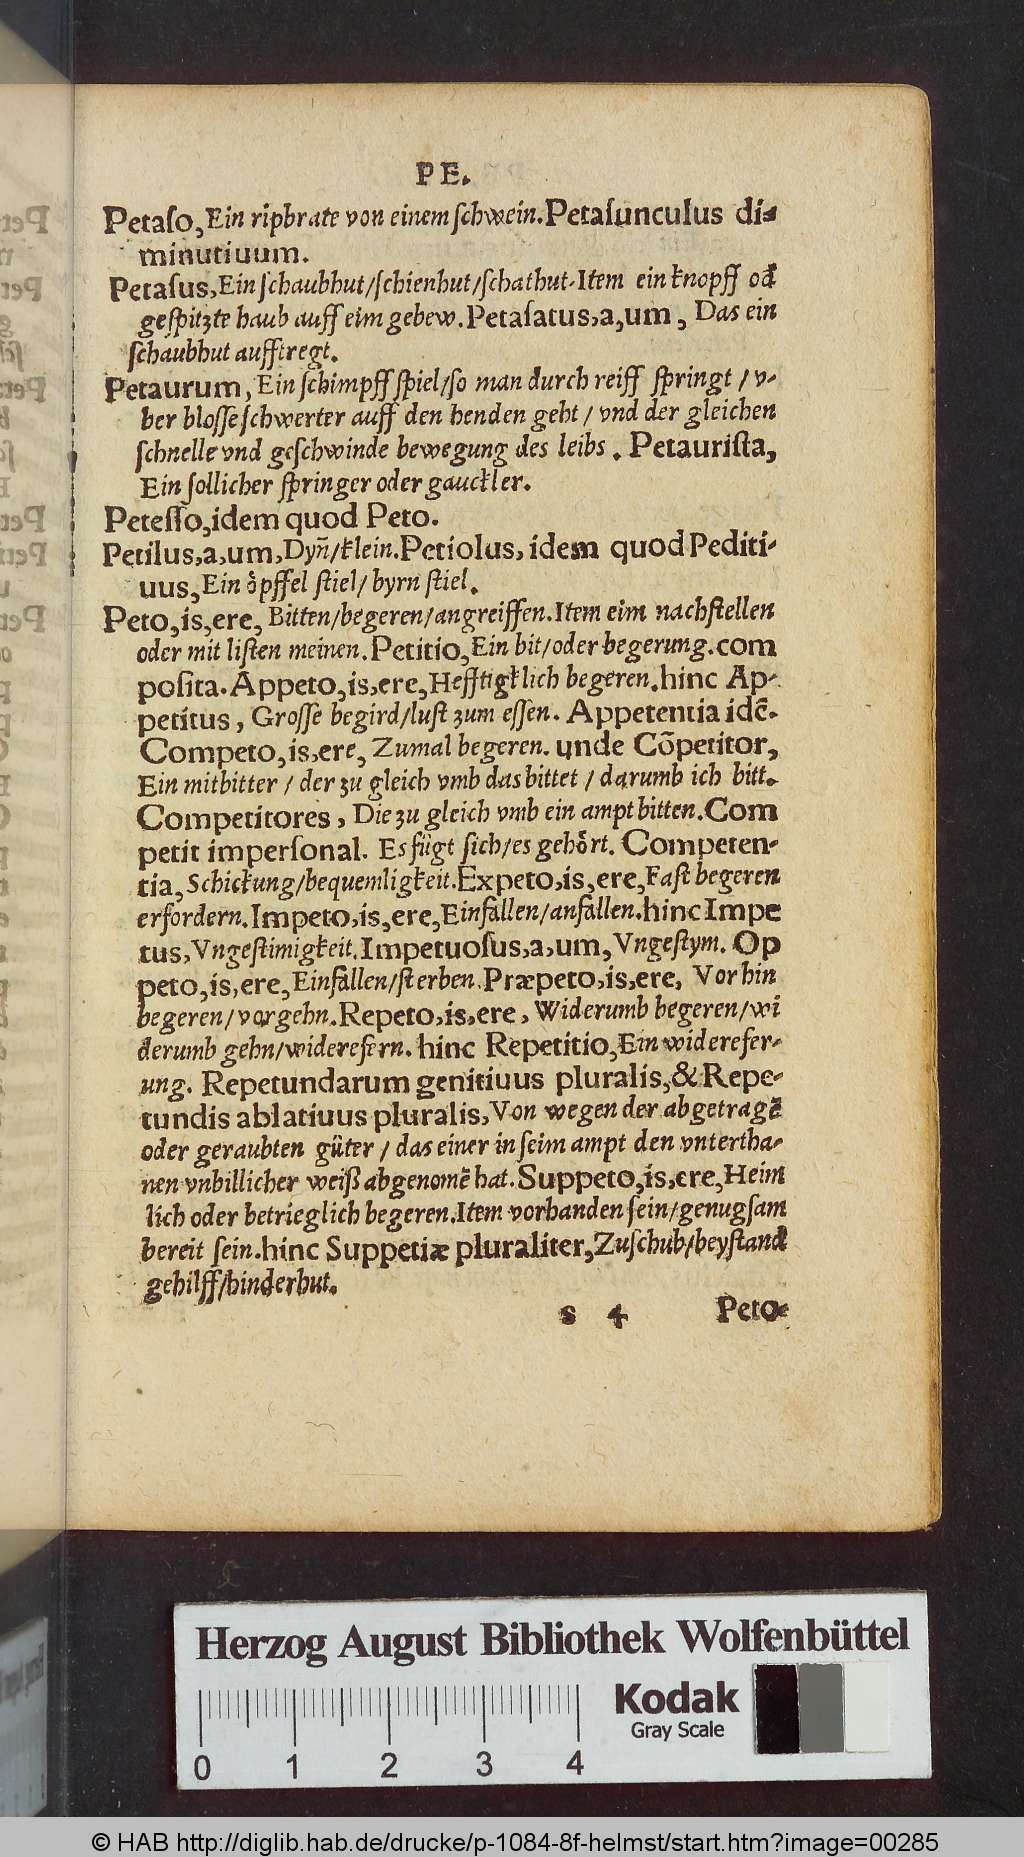 PE.
Petaſo, Ein ripbrate von einem ſchwein. Petaſunculus di-
minutiuum.
Petaſus, Ein ſchaubhut/ſchienhut/ſchathut. Item ein knopff od
geſpitzte haub auff eim gebew. Petaſatus, a, um, Das ein
ſchaubhut aufftregt.
Petaurum, Ein ſchimpff ſpiel/ſo man durch reiff ſpringt / v-
ber bloſſe ſchwerter auff den henden geht / vnd der gleichen
ſchnelle vnd geſchwinde bewegung des leibs. Petauriſta,
Ein ſollicher ſpringer oder gauckler.
Peteſſo, idem quod Peto.
Petilus, a, um, Dyn̄/klein. Petiolus, idem quod Pediti-
uus, Ein oͤpffel ſtiel/ byrn ſtiel.
Peto, is, ere, Bitten/begeren/angreiffen. Item eim nachſtellen
oder mit liſten meinen. Petitio, Ein bit/oder begerung. com
poſita. Appeto, is, ere, Hefftigklich begeren. hinc Ap-
petitus, Groſſe begird/luſt zum eſſen. Appetentia idē.
Competo, is, ere, Zumal begeren. unde Cōpetitor,
Ein mitbitter / der zu gleich vmb das bittet / darumb ich bitt.
Competitores, Die zu gleich vmb ein ampt bitten. Com
petit imperſonal. Es fuͤgt ſich/es gehoͤrt. Competen-
tia, Schickung/bequemligkeit. Expeto, is, ere, Faſt begeren
erfordern. Impeto, is, ere, Einfallen/anfallen. hinc Impe
tus, Vngeſtimigkeit. Impetuoſus, a, um, Vngeſtym. Op
peto, is, ere, Einfallen/ſterben. Præpeto, is, ere, Vorhin
begeren/vorgehn. Repeto, is, ere, Widerumb begeren/wi
derumb gehn/widereſern. hinc Repetitio, Ein widerefer-
ung. Repetundarum genitiuus pluralis, & Repe-
tundis ablatiuus pluralis, Von wegen der abgetragē
oder geraubten guͤter / das einer in ſeim ampt den vntertha-
nen vnbillicher weiß abgenomē hat. Suppeto, is, ere, Heim
lich oder betrieglich begeren. Item vorhanden ſein/genugſam
bereit ſein. hinc Suppetiæ pluraliter, Zuſchub/beyſtand
gehilff/hinderhut.
s 4 Peto-
Herzog August Bibliothek Wolfenbüttel
Kodak
Gray Scale
0 1 2 3 4
© HAB http://diglib.hab.de/drucke/p-1084-8f-helmst/start.htm?image=00285